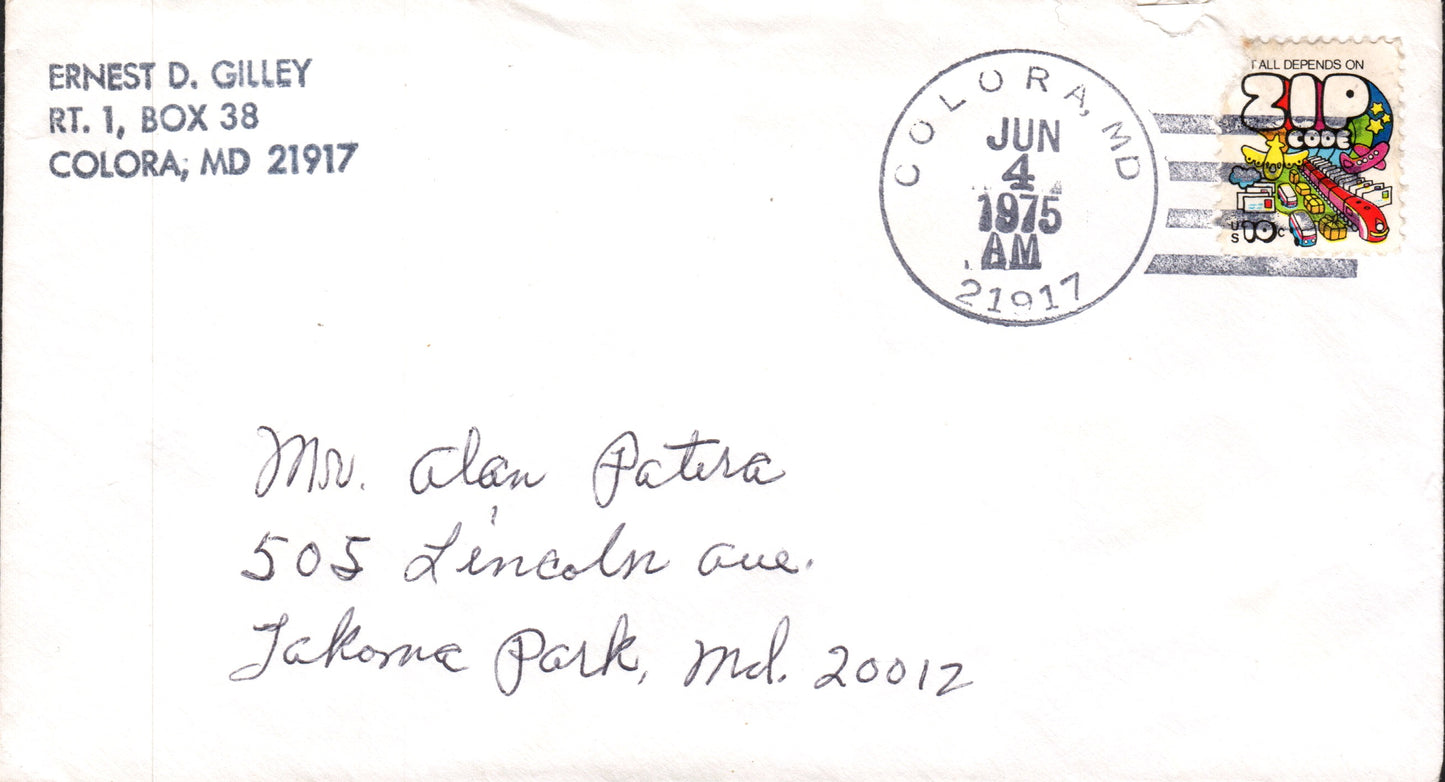 ERNEST D. GILLEY
RT. 1, BOX 38
COLORA, MD 21917
COLORA, MD
JUN
4
1975
AM
21917
T ALL DEPENDS ON
ZIP
CODE
US 10c
Mr. Alan Patera
505 Lincoln Ave.
Takoma Park, Md. 20012